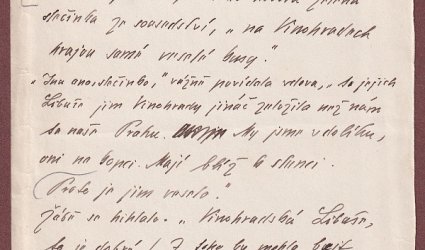 slečinka ze sousedství, „na Vinohradech
hrajou samé veselé kusy."
„Inu ano, slečinko", vážně povídala vdova, „ta jejich
Libuše jim Vinohrady jináč založila než nám
ta naše Prahu. My jsme v dolíku,
oni na kopci. Mají blíž k slunci.
Proto je jim veselo."
se hihlala. „Vinohradská Libuše,
to je dobrý! Z toho by mohla být